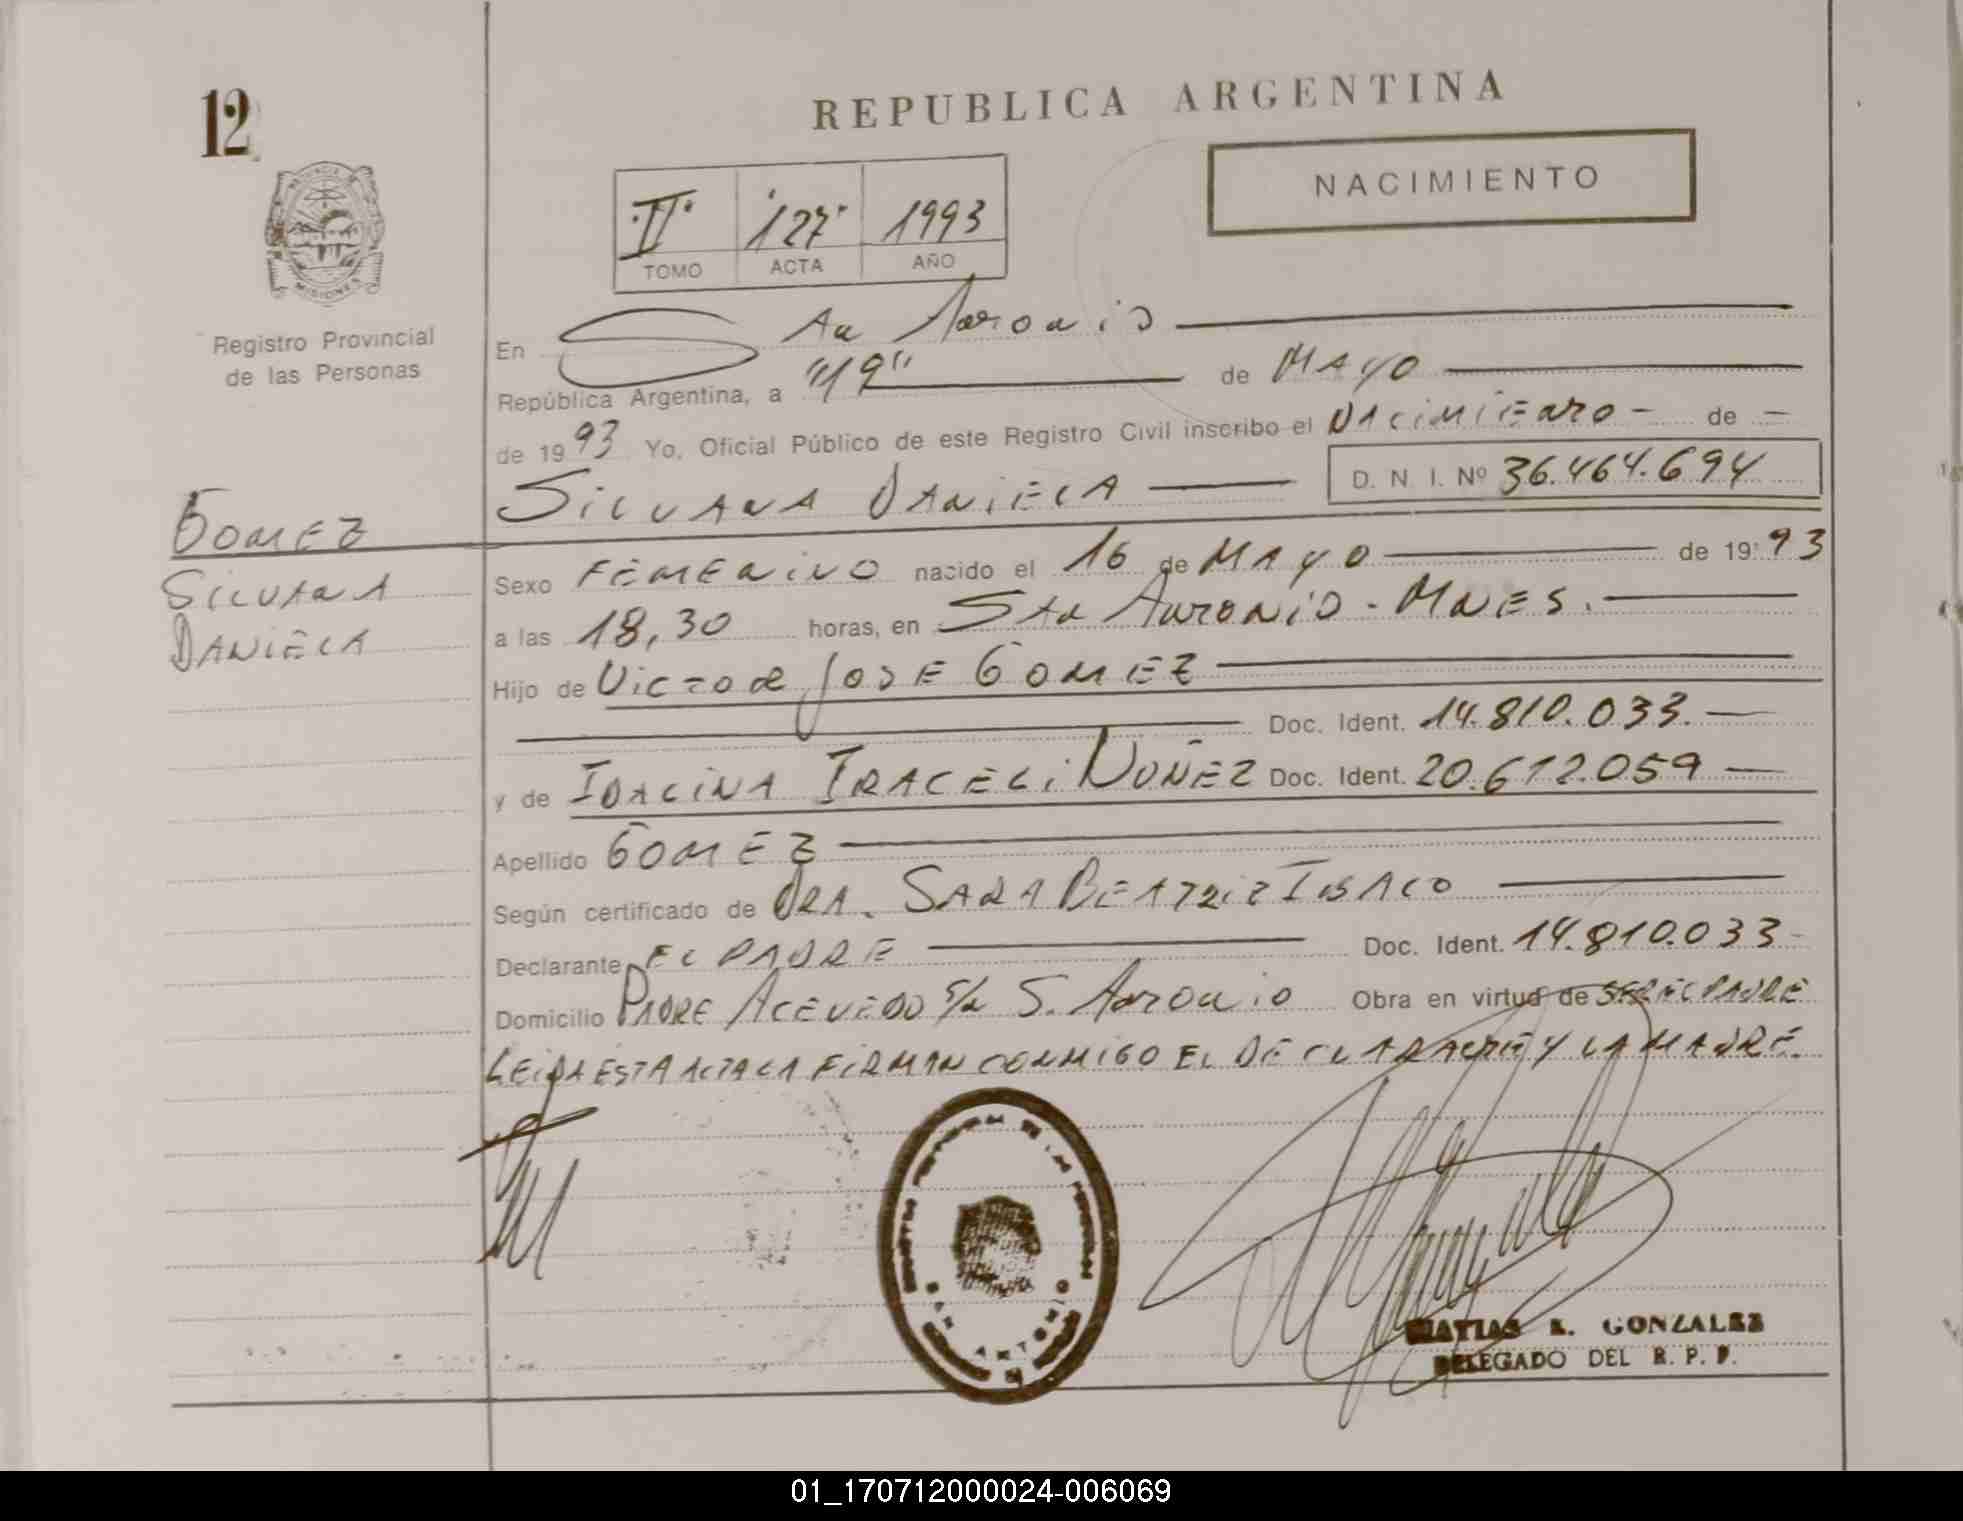 12
REPUBLICA ARGENTINA
NACIMIENTO
II 127 1993
TOMO ACTA AÑO
PROVINCIA DE MISIONES
Registro Provincial
de las Personas
En San Antonio
República Argentina, a "19" de MAYO
de 1993 Yo, Oficial Público de este Registro Civil inscribo el NACIMIENTO - de -
SILVANA DANIELA D. N. I. Nº 36.464.694
GOMEZ
SILVANA
DANIELA
Sexo FEMENINO nacido el 16 de MAYO de 1993
a las 18,30 horas, en SAN ANTONIO - MNES.
Hijo de VICTOR JOSE GOMEZ
Doc. Ident. 14.810.033.
y de IDALINA IRACELI NUÑEZ Doc. Ident. 20.612.059
Apellido GOMEZ
Según certificado de DRA. SARA BEATRIZ
Declarante EL PADRE Doc. Ident. 14.810.033
Domicilio PADRE ACEVEDO S/N S. ANTONIO Obra en virtud de SER EL PADRE
LEIDA ESTA ACTA LA FIRMAN CONMIGO EL DECLARANTE Y LA MADRE.
MATIAS E. GONZALEZ
DELEGADO DEL R. P. P.
01_170712000024-006069